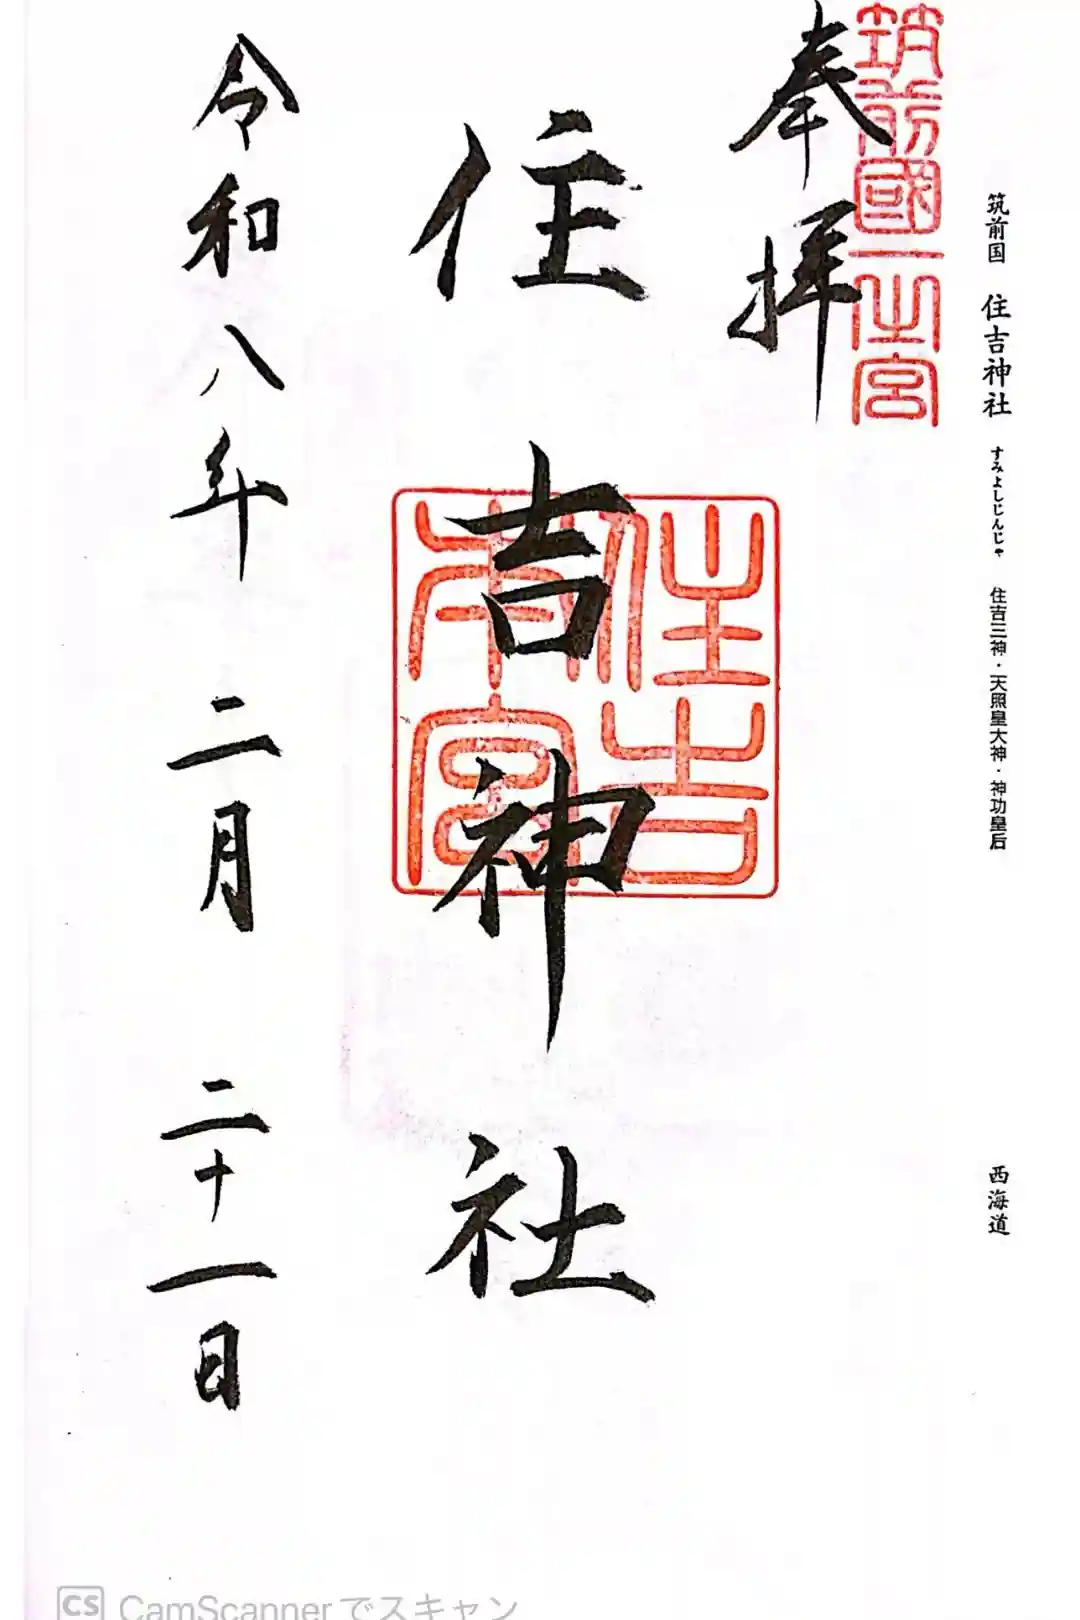 筑前国 住吉神社 すみよしじんじゃ 住吉三神・天照皇大神・神功皇后 西海道
筑前國一之宮
奉拝
住吉神社
住吉本宮
令和八年二月二十一日
CS CamScannerでスキャン